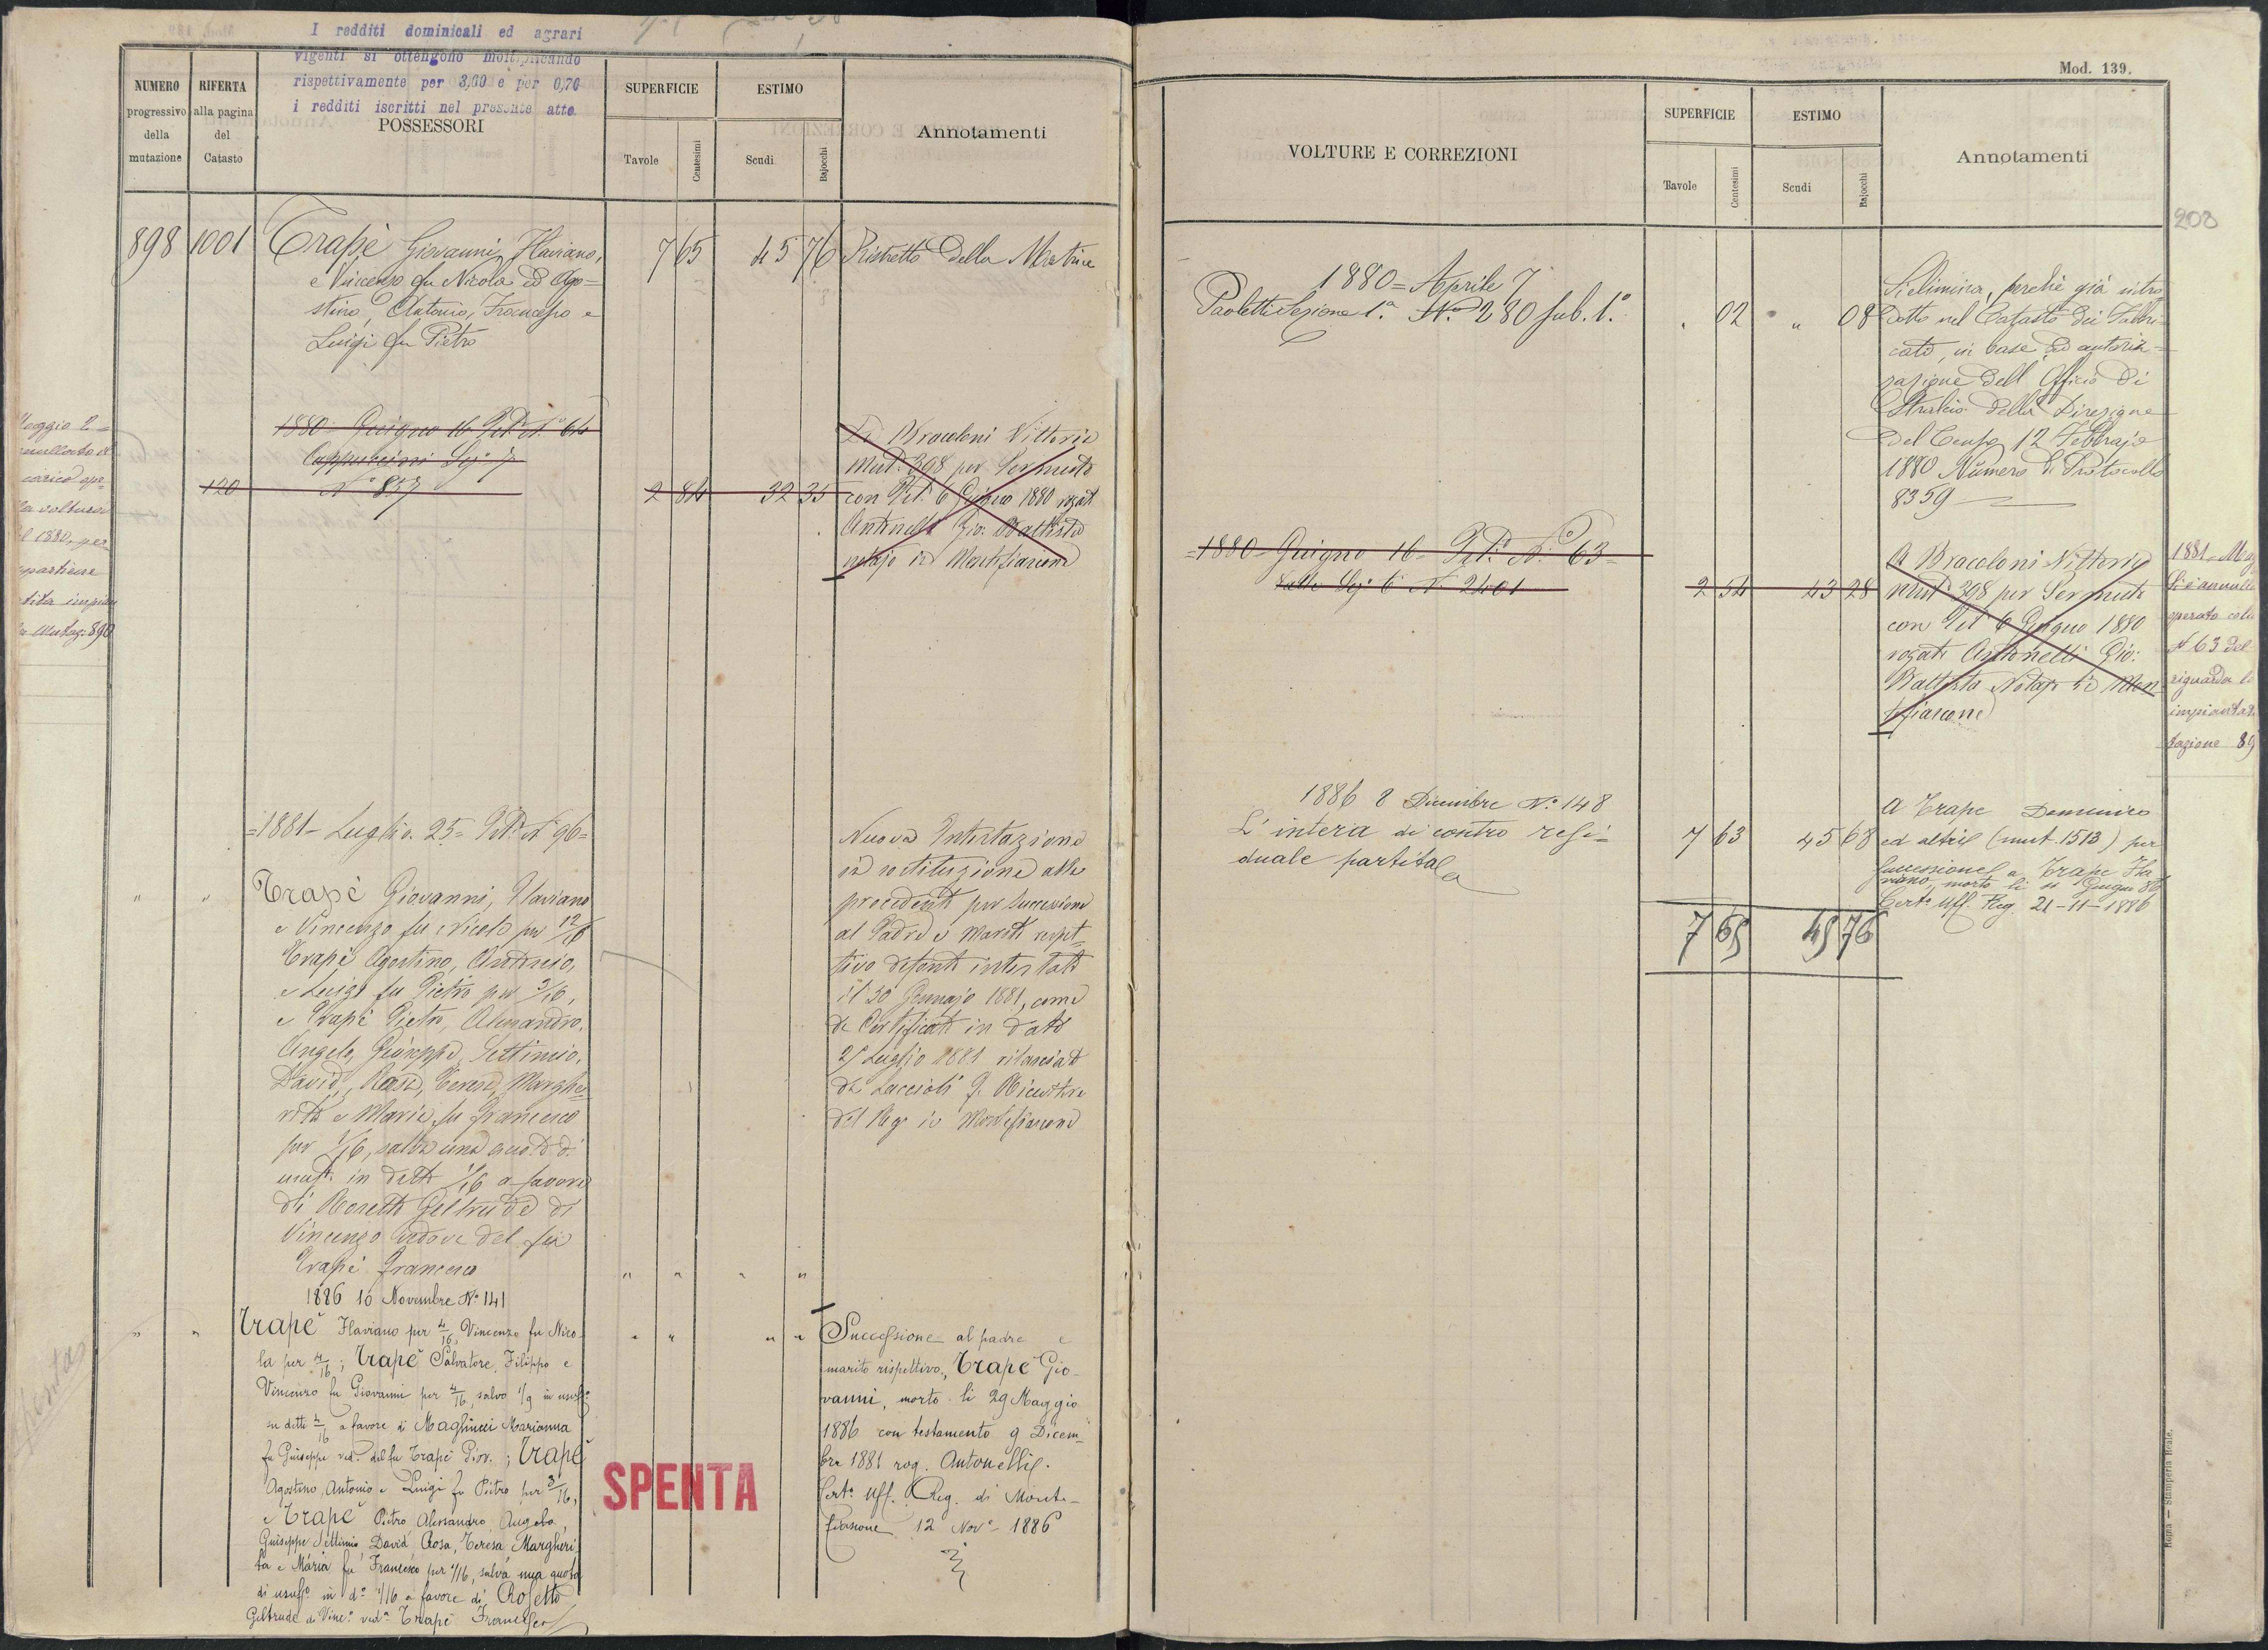 I redditi dominicali ed agrari
vigenti si ottengono moltiplicando
rispettivamente per 3,60 e per 0,70
i redditi iscritti nel presente atto.
NUMERO
progressivo
della
mutazione
RIFERTA
alla pagina
del
Catasto
POSSESSORI
SUPERFICIE
Tavole
Centesimi
ESTIMO
Scudi
Bajocchi
Annotamenti
898 1001 Trapè Giovanni, Flaviano, 7 65 45 76 Ristretto della Matrice
e Vincenzo fu Nicola ed Ago=
stino, Antonio, Francesco e
Luigi fu Pietro
1880 Giugno 16 Pet. N. 64
Cappuccini Sez. 7
120 N° 857 2 84 32 35
Da Bracoloni Vittorio
Mut. 398 per Permuta
con Pet. 6 Giugno 1880 rogato
Antonelli Gio: Battista
notajo in Montefiascone
Maggio 2=
carico ope=
la voltura
1880, per
Mutaz: 890
=1881= Luglio. 25= Pet. N° 96=
" " Trapè Giovanni, Flaviano
e Vincenzo fu Nicola per 12/16
Trapè Agostino, Antonio,
e Luigi fu Pietro per 3/16,
e Trapè Pietro, Alessandro,
Angelo, Giuseppe, Settimio,
David, Rosa, Teresa, Marghe=
rita e Maria fu Francesco
per 1/16, salva una quota di
usuf. in detto 1/16 a favore
di Rosetto Geltrude di
Vincenzo vedova del fu
Trapè Francesco " " " "
Nuova Intestazione
in sostituzione alla
precedente per successione
al Padre e Marito rispet=
tivo defunto intestato
il 30 Gennajo 1881, come
da Certificato in data
21 Luglio 1881 rilasciato
da Laccioli G. Ricevitore
del Reg. in Montefiascone
1886 16 Novembre N° 141
" " Trapè Flaviano per 4/16, Vincenzo fu Nico-
la per 4/16; Trapè Salvatore, Filippo e
Vincenzo fu Giovanni per 4/16, salvo 1/9 in usuf.°
su detti 4/16 a favore di Maglucci Marianna
fu Giuseppe ved. del fu Trapè Giov.; Trapè
Agostino, Antonio e Luigi fu Pietro per 3/16,
e Trapè Pietro Alessandro Angelo,
Giuseppe Settimio David, Rosa, Teresa Margheri
ta e Maria fu Francesco per 1/16, salva una quota
di usuf° in d° 1/16 a favore di Rosetto
Geltrude di Vinc.° ved.ª Trapè Francesco
" " " "
Successione al padre e
marito rispettivo, Trapè Gio-
vanni, morto li 29 Maggio
1886 con testamento 9 Dicem-
bre 1881 rog. Antonelli.
Cert.° Uff. Reg. di Monte-
fiascone 12 Nov.e 1886
SPENTA
Mod. 139.
VOLTURE E CORREZIONI
SUPERFICIE
Tavole
Centesimi
ESTIMO
Scudi
Bajocchi
Annotamenti
203
1880= Aprile 7
Paoletti Sezione 1.ª N° 280 sub. 1.° " 02 " 08
Si elimina, perchè già intro
dotto nel Catasto dei Fabbri
cati, in base ad autoriz=
zazione dell'Officio di
Stralcio della Direzione
del Censo 12 Febbrajo
1880 Numero di Protocollo
8359
=1880= Giugno 16= Pet. N.° 63=
Sez. 6 N° 2401 2 54 43 28
A Bracoloni Vittorio
Mut. 398 per Permuta
con Pet. 6 Giugno 1880
rogato Antonelli Gio:
Battista Notajo in Mon
tefiascone
1881= Mag
Si è annulla
operato colla
N 63 del
riguarda la
impiantata
tazione 89
1886 8 Dicembre N° 148
L'intera di contro resi=
duale partita 7 63 45 68
A Trapè Domenico
ed altri (mut. 1513) per
successione a Trapè Fla
viano, morto li 11 Giugno 86
Cert.° Uff. Reg. 21-11-1886
7 65 45 76
Roma — Stamperia Reale.